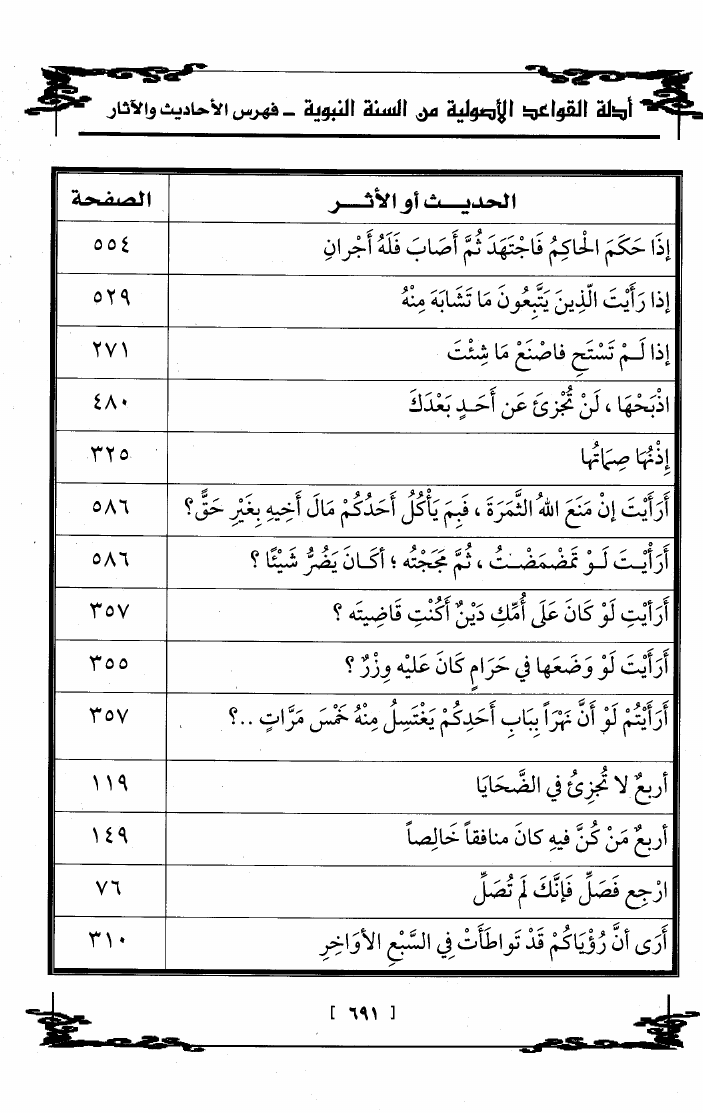 أدلة القواعد الأصولية من السنة النبوية ـ فهرس الأحاديث والآثار
الحديــث أو الأثــر الصفحة
إِذَا حَكَمَ الحَاكِمُ فَاجْتَهَدَ ثُمَّ أَصَابَ فَلَهُ أَجْرانِ ٥٥٤
إذا رَأَيْتَ الَّذِينَ يَتَّبِعُونَ مَا تَشَابَهَ مِنْهُ ٥٢٩
إذا لَـمْ تَسْتَحِ فاصْنَعْ مَا شِئْتَ ٢٧١
اذْبَحْهَا ، لَنْ تُجْزِئَ عَن أَحَـدٍ بَعْدَكَ ٤٨٠
إِذْنُهَا صِمَاتُها ٣٢٥
أَرَأَيْتَ إنْ مَنَعَ اللهُ الثَّمَرَةَ ، فَبِمَ يَأْكُلُ أَحَدُكُمْ مَالَ أَخِيهِ بِغَيْرِ حَقٍّ؟ ٥٨٦
أَرَأْيْـتَ لَـوْ تَمضْمَضْـتُ ، ثُمَّ مَجَجْتُه ؛ أكـانَ يَضُرُّ شَيْئًا ؟ ٥٨٦
أَرَأيْتِ لَوْ كَانَ عَلَى أُمِّكِ دَيْنٌ أَكُنْتِ قَاضِيتَه ؟ ٣٥٧
أَرَأَيْتَ لَوْ وَضَعَها في حَرَامٍ كَانَ عَلَيْه وِزْرٌ ؟ ٣٥٥
أَرَأَيْتُمْ لَوْ أَنَّ نَهْرَاً بِبَابِ أَحَدِكُمْ يَغْتَسِلُ مِنْهُ خَمْسَ مَرَّاتٍ ..؟ ٣٥٧
أربعٌ لا تُجزِئُ في الضَّحَايَا ١١٩
أربعٌ مَنْ كُنَّ فيهِ كانَ منافقاً خَالِصاً ١٤٩
ارْجِع فَصَلِّ فَإِنَّكَ لَم تُصَلِّ ٧٦
أَرَى أنَّ رُؤْيَاكُمْ قَدْ تَواطَأَتْ فِي السَّبْعِ الأوَاخِرِ ٣١٠
[ ٦٩١ ]